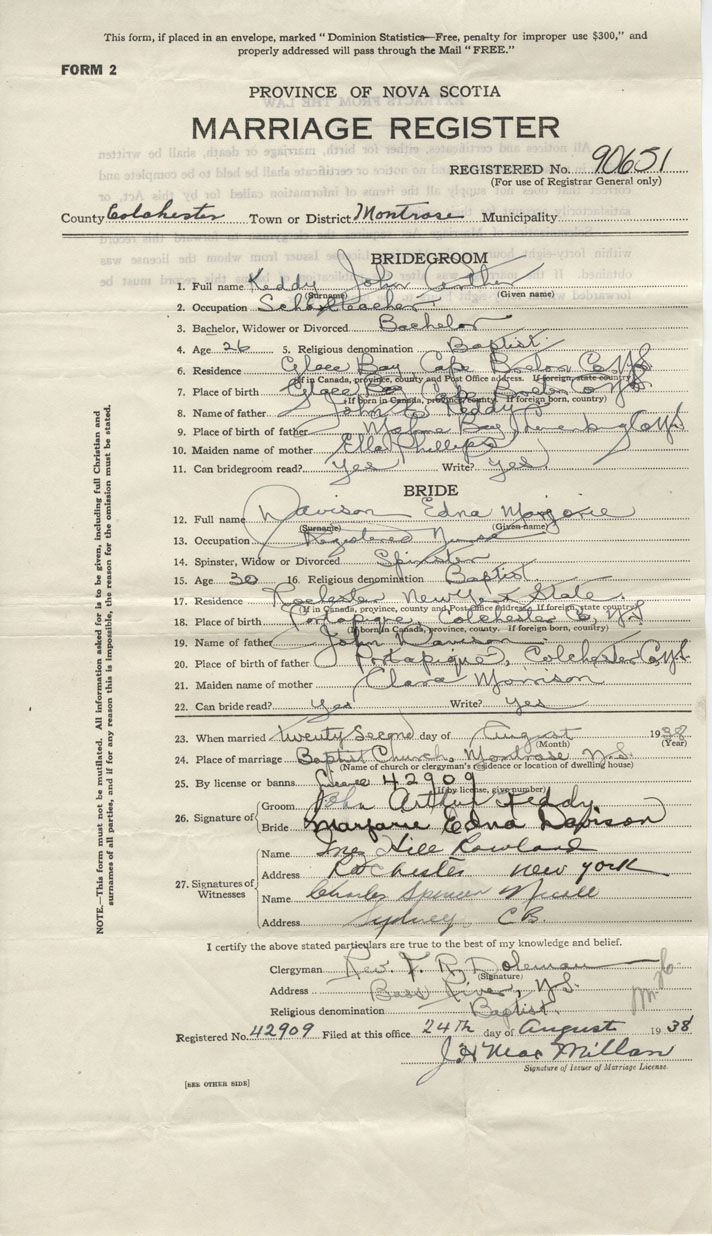 This form, if placed in an envelope, marked "Dominion Statistics—Free, penalty for improper use $300," and
properly addressed will pass through the Mail "FREE."
FORM 2
PROVINCE OF NOVA SCOTIA
MARRIAGE REGISTER
REGISTERED No. 90651
(For use of Registrar General only)
County Colchester Town or District Montrose Municipality
BRIDEGROOM
1. Full name Keddy John Arthur
(Surname) (Given name)
2. Occupation Schoolteacher
3. Bachelor, Widower or Divorced Bachelor
4. Age 26 5. Religious denomination Baptist
6. Residence Glace Bay Cape Breton Co. N.S.
(If in Canada, province, county and Post Office address. If foreign, state country)
7. Place of birth Glace Bay Cape Breton Co N.S.
(If born in Canada, province, county. If foreign born, country)
8. Name of father John Keddy
9. Place of birth of father Mahone Bay Lunenburg Co N.S.
10. Maiden name of mother Ella Phillips
11. Can bridegroom read? Yes Write? Yes
BRIDE
12. Full name Davison Edna Marjorie
(Surname) (Given name)
13. Occupation Registered Nurse
14. Spinster, Widow or Divorced Spinster
15. Age 30 16. Religious denomination Baptist
17. Residence Rochester New York State.
(If in Canada, province, county and Post Office address. If foreign, state country)
18. Place of birth Portapique, Colchester Co, N.S.
(If born in Canada, province, county. If foreign born, country)
19. Name of father John Davison
20. Place of birth of father Portapique, Colchester Co N.S.
21. Maiden name of mother Clara Morrison
22. Can bride read? Yes Write? Yes
23. When married twenty Second day of August 1938
(Month) (Year)
24. Place of marriage Baptist Church, Montrose N.S.
(Name of church or clergyman's residence or location of dwelling house)
25. By license or banns License 42909
(If by license, give number)
26. Signature of Groom John Arthur Keddy
Bride Marjorie Edna Davison
27. Signatures of Witnesses
Name Inez Hill Rowland
Address Rochester New York
Name Charles Spencer Nicoll
Address Sydney C.B.
I certify the above stated particulars are true to the best of my knowledge and belief.
Clergyman Rev. F. R. Doleman
(Signature)
Address Bass River, N.S.
Religious denomination Baptist.
Registered No. 42909 Filed at this office 24th day of August 1938
J H MacMillan
Signature of Issuer of Marriage License.
[SEE OTHER SIDE]
NOTE.—This form must not be mutilated. All information asked for is to be given, including full Christian and
surnames of all parties, and if for any reason this is impossible, the reason for the omission must be stated.